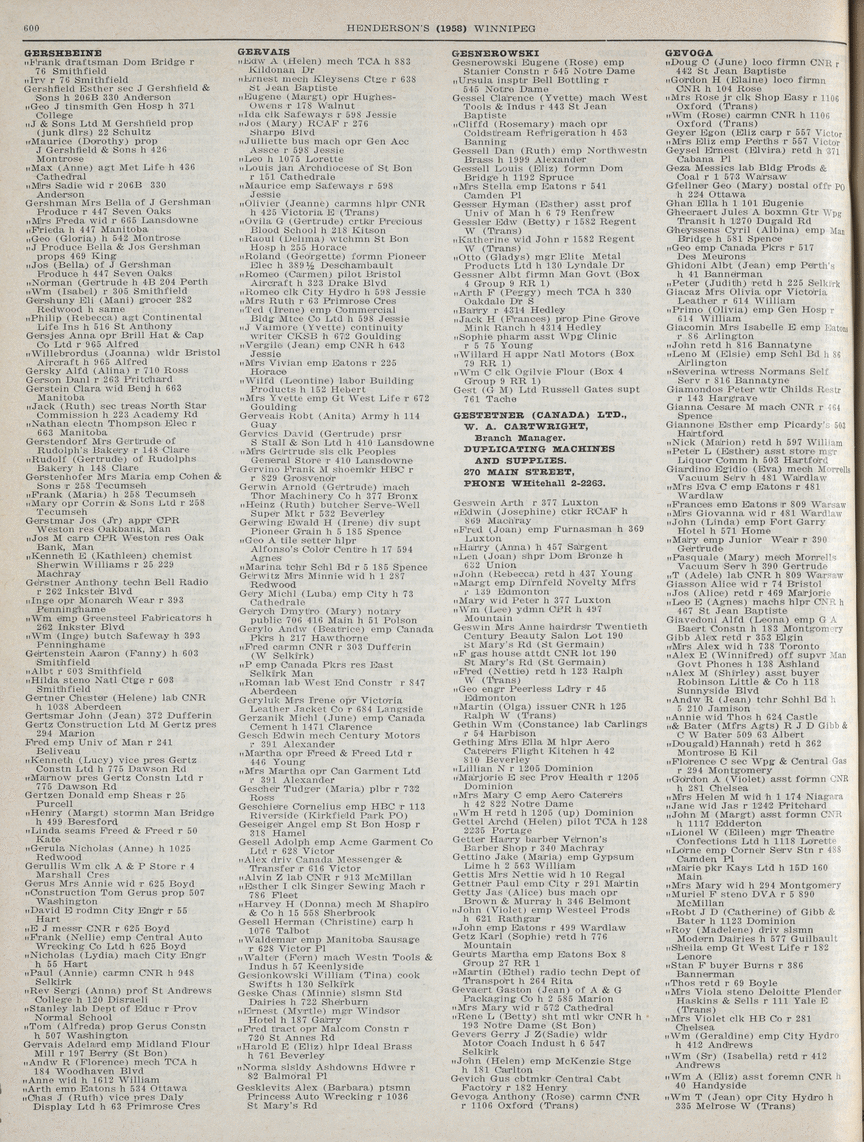 600
HENDERSON'S (1958) WINNIPEG
GERSHBEINE
"Frank draftsman Dom Bridge r
76 Smithfield
"Irv r 76 Smithfield
Gershfield Esther sec J Gershfield &
Sons h 206B 330 Anderson
"Geo J tinsmith Gen Hosp h 371
College
"J & Sons Ltd M Gershfield prop
(junk dlrs) 22 Schultz
"Maurice (Dorothy) prop
J Gershfield & Sons h 426
Montrose
"Max (Anne) agt Met Life h 436
Cathedral
"Mrs Sadie wid r 206B 330
Anderson
Gershman Mrs Bella of J Gershman
Produce r 447 Seven Oaks
"Mrs Freda wid r 665 Lansdowne
"Frieda h 447 Manitoba
"Geo (Gloria) h 542 Montrose
"J Produce Bella & Jos Gershman
props 469 King
"Jos (Bella) of J Gershman
Produce h 447 Seven Oaks
"Norman (Gertrude h 4B 204 Perth
"Wm (Isabel) r 305 Smithfield
Gershuny Eli (Mani) grocer 282
Redwood h same
"Philip (Rebecca) agt Continental
Life Ins h 516 St Anthony
Gersjes Anna opr Brill Hat & Cap
Co Ltd r 965 Alfred
"Willebrordus (Joanna) wldr Bristol
Aircraft h 965 Alfred
Gersky Alfd (Alina) r 710 Ross
Gerson Danl r 263 Pritchard
Gerstein Clara wid Benj h 663
Manitoba
"Jack (Ruth) sec treas North Star
Commission h 223 Academy Rd
"Nathan electn Thompson Elec r
663 Manitoba
Gerstendorf Mrs Gertrude of
Rudolph's Bakery r 148 Clare
"Rudolf (Gertrude) of Rudolphs
Bakery h 148 Clare
Gerstenhofer Mrs Maria emp Cohen &
Sons r 258 Tecumseh
"Frank (Maria) h 258 Tecumseh
"Mary opr Corrin & Sons Ltd r 258
Tecumseh
Gerstmar Jos (Jr) appr CPR
Weston res Oakbank, Man
"Jos M carp CPR Weston res Oak
Bank, Man
"Kenneth E (Kathleen) chemist
Sherwin Williams r 25 229
Machray
Gerstner Anthony techn Bell Radio
r 262 Inkster Blvd
"Inge opr Monarch Wear r 393
Penninghame
"Wm emp Greensteel Fabricators h
262 Inkster Blvd
"Wm (Inge) butch Safeway h 393
Penninghame
Gertenstein Aaron (Fanny) h 603
Smithfield
"Albt r 603 Smithfield
"Hilda steno Natl Ctge r 603
Smithfield
Gertner Chester (Helene) lab CNR
h 1038 Aberdeen
Gertsmar John (Jean) 372 Dufferin
Gertz Construction Ltd M Gertz pres
294 Marion
Fred emp Univ of Man r 241
Beliveau
"Kenneth (Lucy) vice pres Gertz
Constn Ltd h 775 Dawson Rd
"Marnow pres Gertz Constn Ltd r
775 Dawson Rd
Gertzen Donald emp Sheas r 25
Purcell
"Henry (Margt) stormn Man Bridge
h 499 Beresford
"Linda seams Freed & Freed r 50
Kate
"Gerula Nicholas (Anne) h 1025
Redwood
Gerullis Wm clk A & P Store r 4
Marshall Cres
Gerus Mrs Annie wid r 625 Boyd
"Construction Tom Gerus prop 507
Washington
"David E rodmn City Engr r 55
Hart
"E J messr CNR r 625 Boyd
"Frank (Nellie) emp Central Auto
Wrecking Co Ltd h 625 Boyd
"Nicholas (Lydia) mach City Engr
h 55 Hart
"Paul (Annie) carmn CNR h 948
Selkirk
"Rev Sergi (Anna) prof St Andrews
College h 120 Disraeli
"Stanley lab Dept of Educ r Prov
Normal School
"Tom (Alfreda) prop Gerus Constn
h 507 Washington
Gervais Adelard emp Midland Flour
Mill r 197 Berry (St Bon)
"Andw R (Florence) mech TCA h
184 Woodhaven Blvd
"Anne wid h 1612 William
"Arth emp Eatons h 534 Ottawa
"Chas J (Ruth) vice pres Daly
Display Ltd h 63 Primrose Cres
GERVAIS
"Edw A (Helen) mech TCA h 883
Kildonan Dr
"Ernest mech Kleysens Ctge r 638
St Jean Baptiste
"Eugene (Margt) opr Hughes-
Owens r 178 Walnut
"Ida clk Safeways r 598 Jessie
"Jos (Mary) RCAF r 276
Sharpe Blvd
"Julliette bus mach opr Gen Acc
Assce r 598 Jessie
"Leo h 1075 Lorette
"Louis jan Archdiocese of St Bon
r 151 Cathedrale
"Maurice emp Safeways r 598
Jessie
"Olivier (Jeanne) carmns hlpr CNR
h 425 Victoria E (Trans)
"Ovila G (Gertrude) crtkr Precious
Blood School h 218 Kitson
"Raoul (Delima) wtchmn St Bon
Hosp h 255 Horace
"Roland (Georgette) formn Pioneer
Elec h 389½ Deschambault
"Romeo (Carmen) pilot Bristol
Aircraft h 323 Drake Blvd
"Romeo clk City Hydro h 598 Jessie
"Mrs Ruth r 63 Primrose Cres
"Ted (Irene) emp Commercial
Bldg Mtce Co Ltd h 598 Jessie
"J Valmore (Yvette) continuity
writer CKSB h 672 Goulding
"Vergilo (Jean) emp CNR h 643
Jessie
"Mrs Vivian emp Eatons r 225
Horace
"Wilfd (Leontine) labor Building
Products h 152 Hebert
"Mrs Yvette emp Gt West Life r 672
Goulding
Gerveais Robt (Anita) Army h 114
Guay
Gervics David (Gertrude) prsr
S Stall & Son Ltd h 410 Lansdowne
"Mrs Gertrude sls clk Peoples
Store r 410 Lansdowne
Gervino Frank M shoemkr HBC r
r 829 Grosvenor
Gerwin Arnold (Gertrude) mach
Thor Machinery Co h 377 Bronx
"Heinz (Ruth) butcher Serve-Well
Super Mkt r 532 Beverley
Gerwing Ewald H (Irene) div supt
Pioneer Grain h 5 185 Spence
"Geo A tile setter hlpr
Alfonso's Color Centre h 17 594
Agnes
"Marina tchr Schl Bd r 5 185 Spence
Gerwitz Mrs Minnie wid h 1 287
Redwood
Gery Michl (Luba) emp City h 73
Cathedrale
Gerych Dmytro (Mary) notary
public 706 416 Main h 51 Polson
Gerylo Andw (Beatrice) emp Canada
Pkrs h 217 Hawthorne
"Fred carmn CNR r 303 Dufferin
(W Selkirk)
"P emp Canada Pkrs res East
Selkirk Man
"Roman lab West End Constr r 847
Aberdeen
Geryluk Mrs Irene opr Victoria
Leather Jacket Co r 684 Langside
Gerzanik Michl (June) emp Canada
Cement h 1471 Clarence
Gesch Edwin mech Century Motors
r 391 Alexander
"Martha opr Freed & Freed Ltd r
446 Young
"Mrs Martha opr Can Garment Ltd
r 391 Alexander
Gescher Tudger (Maria) plbr r 732
Ross
Geschiere Cornelius emp HBC r 113
Riverside (Kirkfield Park PO)
Geseiger Angel emp St Bon Hosp r
318 Hamel
Gesell Adolph emp Acme Garment Co
Ltd r 628 Victor
"Alex driv Canada Messenger &
Transfer r 616 Victor
"Alvin Z lab CNR r 913 McMillan
"Esther I clk Singer Sewing Mach r
786 Fleet
"Harvey H (Donna) mech M Shapiro
& Co h 15 558 Sherbrook
Gesell Herman (Christine) carp h
1076 Talbot
"Waldemar emp Manitoba Sausage
r 628 Victor Pl
"Walter (Fern) mach Westn Tools &
Indus h 57 Keenlyside
Gesionkowski William (Tina) cook
Swifts h 130 Selkirk
Geske Chas (Minnie) slsmn Std
Dairies h 722 Sherburn
"Ernest (Myrtle) mgr Windsor
Hotel h 187 Garry
"Fred tract opr Malcom Constn r
720 St Annes Rd
"Harold E (Eliz) hlpr Ideal Brass
h 761 Beverley
"Norma slsldy Ashdowns Hdwre r
82 Balmoral Pl
Gesklevits Alex (Barbara) ptsmn
Princess Auto Wrecking r 1036
St Mary's Rd
GESNEROWSKI
Gesnerowski Eugene (Rose) emp
Stanier Constn r 545 Notre Dame
"Ursula insptr Bell Bottling r
545 Notre Dame
Gessel Clarence (Yvette) mach West
Tools & Indus r 443 St Jean
Baptiste
"Cliffd (Rosemary) mach opr
Coldstream Refrigeration h 453
Banning
Gessell Dan (Ruth) emp Northwestn
Brass h 1999 Alexander
Gessell Louis (Eliz) formn Dom
Bridge h 1192 Spruce
"Mrs Stella emp Eatons r 541
Camden Pl
Gesser Hyman (Esther) asst prof
Univ of Man h 6 79 Renfrew
Gessler Edw (Betty) r 1582 Regent
W (Trans)
"Katherine wid John r 1582 Regent
W (Trans)
"Otto (Gladys) mgr Elite Metal
Products Ltd h 130 Lyndale Dr
Gessner Albt firman Man Govt (Box
4 Group 9 RR 1)
"Arth P (Peggy) mech TCA h 330
Oakdale Dr S
"Barry r 4314 Hedley
"Jack H (Frances) prop Pine Grove
Mink Ranch h 4314 Hedley
"Sophie pharm asst Wpg Clinic
r 5 75 Young
"Willard H appr Natl Motors (Box
79 RR 1)
"Wm C clk Ogilvie Flour (Box 4
Group 9 RR 1)
Gest (G M) Ltd Russell Gates supt
761 Tache
GESTETNER (CANADA) LTD.,
W. A. CARTWRIGHT,
Branch Manager.
DUPLICATING MACHINES
AND SUPPLIES.
270 MAIN STREET,
PHONE WHitehall 2-2263.
Geswein Arth r 377 Luxton
"Edwin (Josephine) ctkr RCAF h
869 Machray
"Fred (Joan) emp Furnasman h 369
Luxton
"Harry (Anna) h 457 Sargent
"Len (Joan) shpr Dom Bronze h
632 Union
"John (Rebecca) retd h 437 Young
"Margt emp Dirnfeld Novelty Mfrs
r 139 Edmonton
"Mary wid Peter h 377 Luxton
"Wm (Lee) ydmn CPR h 497
Mountain
Geswin Mrs Anne hairdrsr Twentieth
Century Beauty Salon Lot 190
St Mary's Rd (St Germain)
"F gas house attdt CNR lot 190
St Mary's Rd (St Germain)
"Fred (Nettie) retd h 123 Ralph
W (Trans)
"Geo engr Peerless Ldry r 45
Edmonton
"Martin (Olga) issuer CNR h 125
Ralph W (Trans)
Gethin Wm (Constance) lab Carlings
r 54 Harbison
Gething Mrs Ella M hlpr Aero
Caterers Flight Kitchen h 42
810 Beverley
"Lillian N r 1205 Dominion
"Marjorie E sec Prov Health r 1205
Dominion
"Mrs Mary C emp Aero Caterers
h 42 822 Notre Dame
"Wm H retd h 1205 (up) Dominion
Gettel Archd (Helen) pilot TCA h 128
2235 Portage
Getter Harry barber Vernon's
Barber Shop r 340 Machray
Gettino Jake (Maria) emp Gypsum
Lime h 2 563 William
Gettis Mrs Nettie wid h 10 Regal
Gettner Paul emp City r 291 Martin
Getty Jas (Alice) bus mach opr
Brown & Murray h 346 Belmont
"John (Violet) emp Westeel Prods
h 621 Rathgar
"John emp Eatons r 499 Wardlaw
Getz Karl (Sophie) retd h 776
Mountain
Geurts Martha emp Eatons Box 8
Group 27 RR 1
"Martin (Ethel) radio techn Dept of
Transport h 264 Rita
Gevaert Gaston (Jean) of A & G
Packaging Co h 2 585 Marion
"Mrs Mary wid r 572 Cathedral
"Rene L (Betty) sht mtl wkr CNR h
193 Notre Dame (St Bon)
Gevers Gerry J Z(Sadie) widr
Motor Coach Indust h 6 547
Selkirk
"John (Helen) emp McKenzie Stge
h 181 Carlton
Gevich Gus cbtmkr Central Cabt
Factory r 182 Henry
Gevoga Anthony (Rose) carmn CNR
r 1106 Oxford (Trans)
GEVOGA
"Doug C (June) loco firmn CNR r
442 St Jean Baptiste
"Gordon H (Elaine) loco firmn
CNR h 104 Rose
"Mrs Rose jr clk Shop Easy r 1106
Oxford (Trans)
"Wm (Rose) carmn CNR h 1106
Oxford (Trans)
Geyer Egon (Eliz carp r 557 Victor
"Mrs Eliz emp Perths r 557 Victor
Geysel Ernest (Elvira) retd h 371
Cabana Pl
Geza Messics lab Bldg Prods &
Coal r 1 573 Warsaw
Gfellner Geo (Mary) postal offr PO
h 224 Ottawa
Ghan Ella h 1 101 Eugenie
Gheeraert Jules A boxmn Gtr Wpg
Transit h 1270 Dugald Rd
Gheyssens Cyril (Albina) emp Man
Bridge h 581 Spence
"Geo emp Canada Pkrs r 517
Des Meurons
Ghidoni Albt (Jean) emp Perth's
h 41 Bannerman
"Peter (Judith) retd h 225 Selkirk
Giacaz Mrs Olivia opr Victoria
Leather r 614 William
"Primo (Olivia) emp Gen Hosp r
614 William
Giacomin Mrs Isabelle E emp Eatons
r 86 Arlington
"John retd h 816 Bannatyne
"Leno M (Elsie) emp Schl Bd h 86
Arlington
"Severina wtress Normans Self
Serv r 816 Bannatyne
Giamondos Peter wtr Childs Restr
r 143 Hargrave
Gianna Cesare M mach CNR r 464
Spence
Giannone Esther emp Picardy's 502
Hartford
"Nick (Marion) retd h 597 William
"Peter L (Esther) asst store mgr
Liquor Comm h 503 Hartford
Giardino Egidio (Eva) mech Morrells
Vacuum Serv h 481 Wardlaw
"Mrs Eva C emp Eatons r 481
Wardlaw
"Frances emp Eatons r 809 Warsaw
"Mrs Giovanna wid r 481 Wardlaw
"John (Linda) emp Fort Garry
Hotel h 571 Home
"Mary emp Junior Wear r 390
Gertrude
"Pasquale (Mary) mech Morrells
Vacuum Serv h 390 Gertrude
"T (Adele) lab CNR h 809 Warsaw
Giasson Alice wid r 74 Bristol
"Jos (Alice) retd r 469 Marjorie
"Leo E (Agnes) machs hlpr CNR h
467 St Jean Baptiste
Giavedoni Alfd (Leona) emp G A
Baert Constn h 183 Montgomery
Gibb Alex retd r 353 Elgin
"Mrs Alex wid h 738 Toronto
"Alex E (Winnifred) off supvr Man
Govt Phones h 138 Ashland
"Alex M (Shirley) asst buyer
Robinson Little & Co h 118
Sunnyside Blvd
"Andw R (Jean) tchr Schhl Bd h
5 210 Jamison
"Annie wid Thos h 624 Castle
"& Bater (Mfrs Agts) R J D Gibb &
C W Bater 509 63 Albert
"Dougald)Hannah) retd h 362
Montrose E Kil
"Florence C sec Wpg & Central Gas
r 294 Montgomery
"Gordon A (Violet) asst formn CNR
h 281 Chelsea
"Mrs Helen M wid h 1 174 Niagara
"Jane wid Jas r 1242 Pritchard
"John M (Margt) asst formn CNR
h 1117 Edderton
"Lionel W (Eileen) mgr Theatre
Confections Ltd h 1118 Lorette
"Lorne emp Corner Serv Stn r 488
Camden Pl
"Marie pkr Kays Ltd h 15D 160
Main
"Mrs Mary wid h 294 Montgomery
"Muriel F steno DVA r 5 890
McMillan
"Robt J D (Catherine) of Gibb &
Bater h 1123 Dominion
"Roy (Madelene) driv slsmn
Modern Dairies h 577 Guilbault
"Sheila emp Gt West Life r 182
Lenore
"Stan F buyer Burns r 386
Bannerman
"Thos retd r 69 Boyle
"Mrs Viola steno Deloitte Plender
Haskins & Sells r 111 Yale E
(Trans)
"Mrs Violet clk HB Co r 281
Chelsea
"Wm (Geraldine) emp City Hydro
h 412 Andrews
"Wm (Sr) (Isabella) retd r 412
Andrews
"Wm A (Eliz) asst foremn CNR h
40 Handyside
"Wm T (Jean) opr City Hydro h
335 Melrose W (Trans)